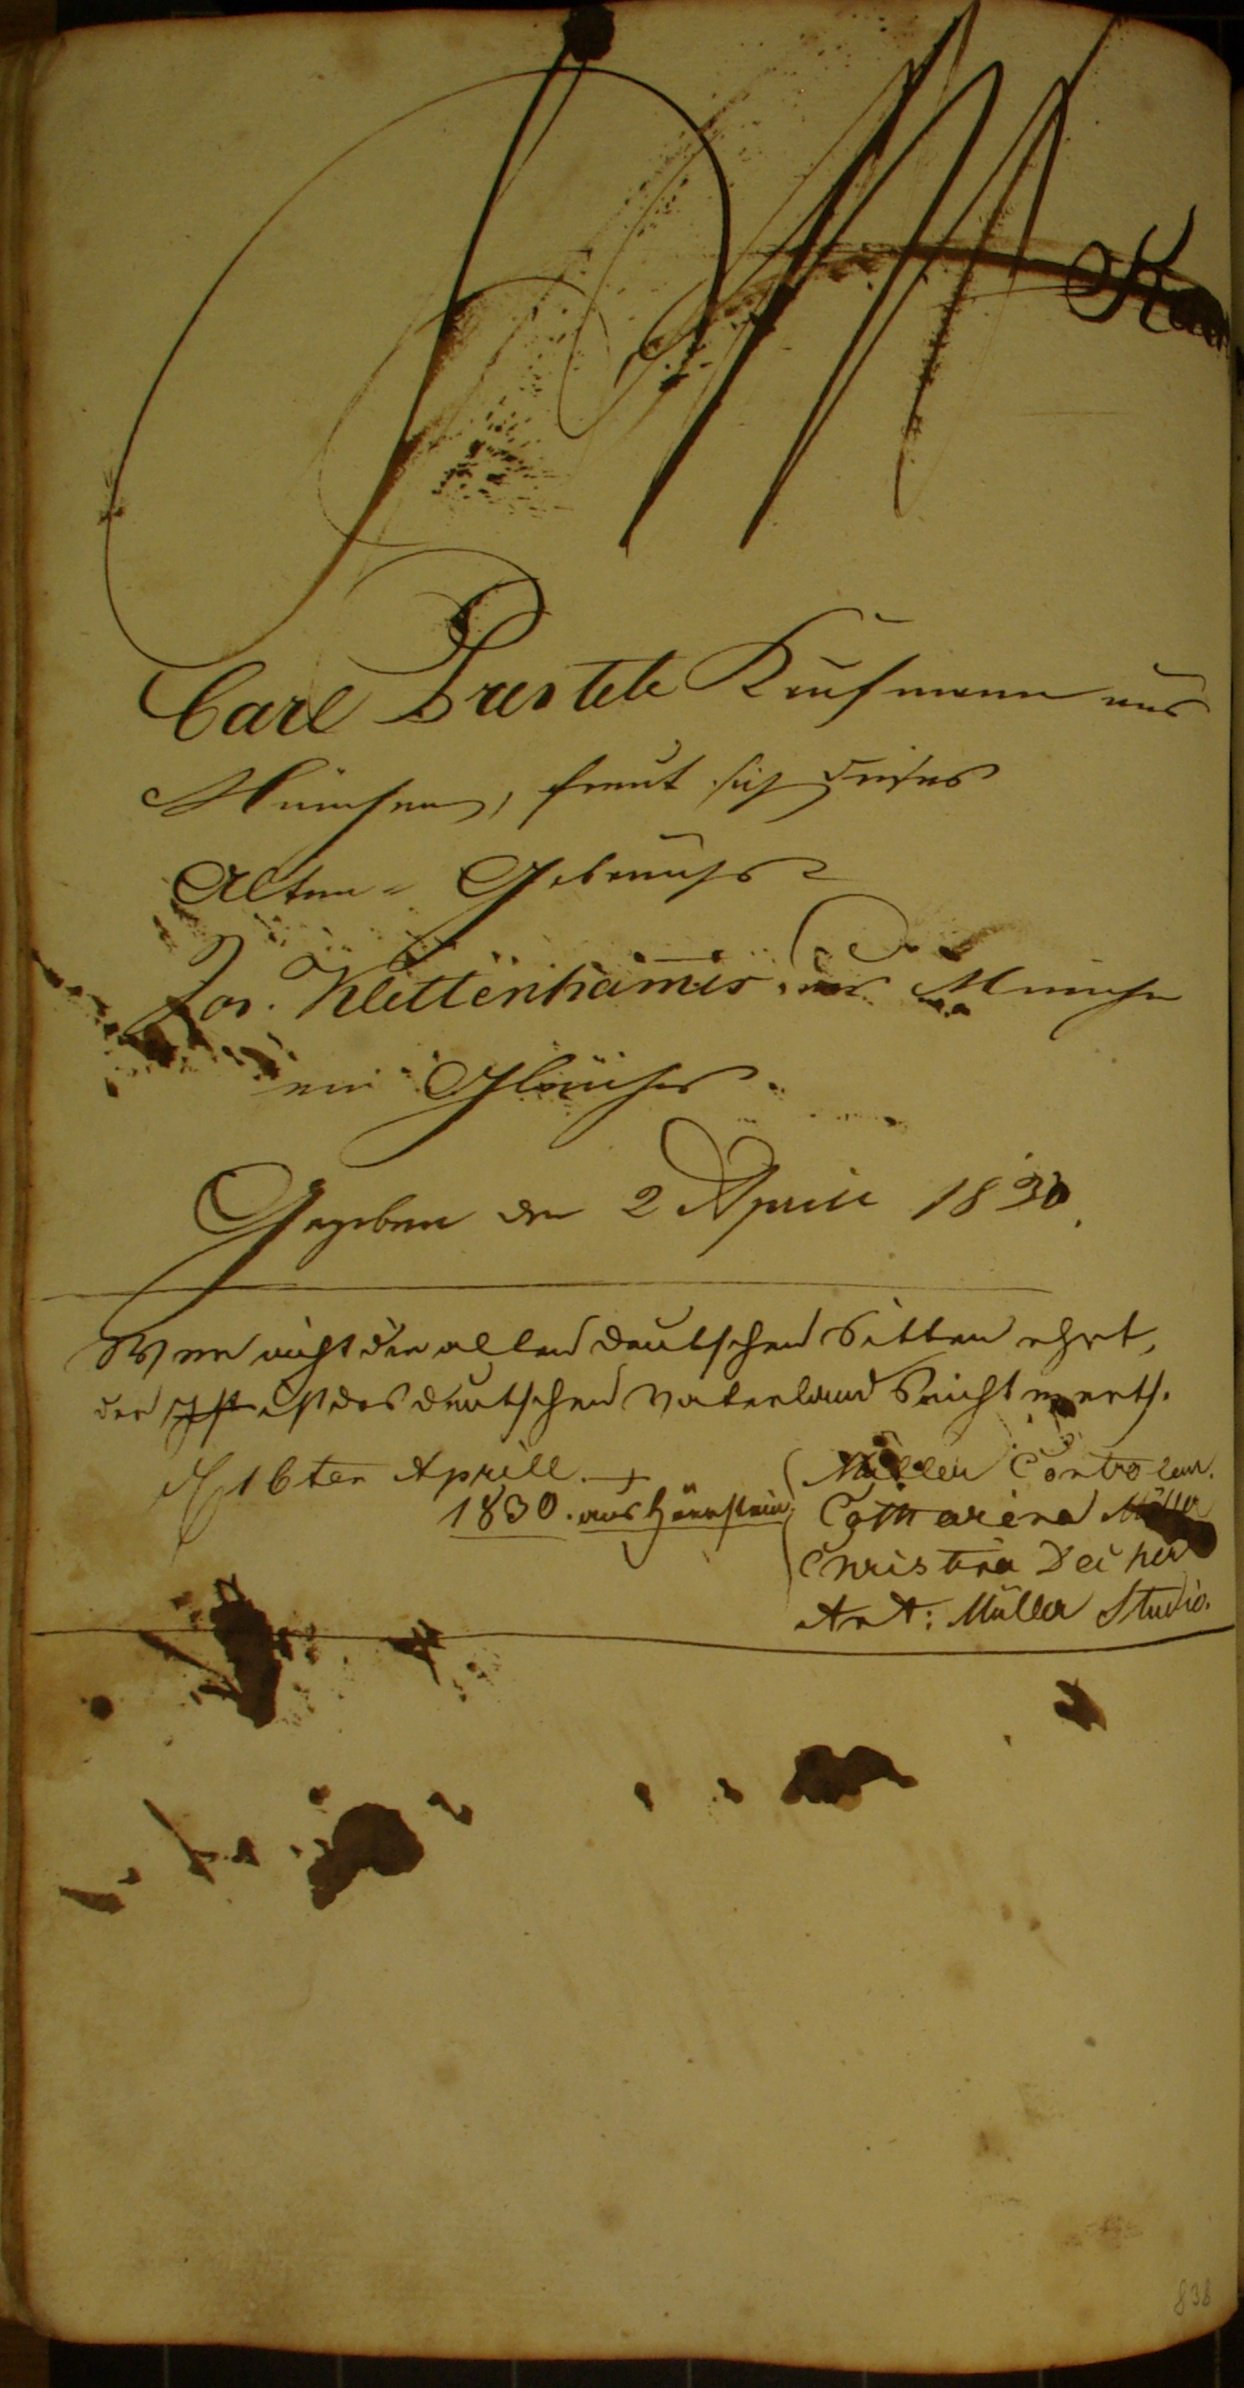 Carl Prestele Kaufmann aus
München, freut sich dieses
Alten Gebrauchs
Jos. Klettenhamer aus München
ein Gleiches
Gegeben den 2 April 1830.
Wer nicht die alten deutschen Sitten ehrt,
der ist des deutschen Vaterlands nicht werth.
16ten Aprill
Müller Controleur.
1830. aus
Catharina Müller
Christina Decher
Ant: Müller Studio.
838